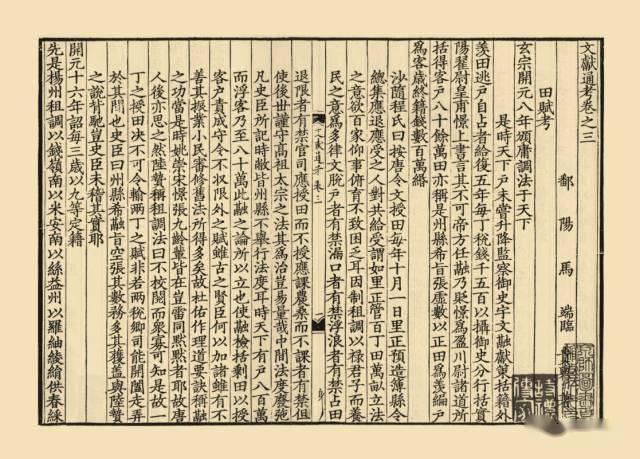 文獻通考卷之三
鄱陽馬端臨
田賦考
玄宗開元八年頒庸調法于天下
是時天下戶未嘗升降監察御史宇文融獻策括籍外
羨田逃戶自占者給復五年每丁稅錢千五百以攝御史分行括實
陽翟尉皇甫憬上書言其不可帝方任融乃貶憬為盈川尉諸道所
括得客戶八十餘萬田亦稱是州縣希旨張虛數以正田為羨編戶
為客歲終籍錢數百萬緡
沙隨程氏曰按唐令文授田每年十月一日里正預造簿縣令
總集應退應受之人對共給受謂如里正管百丁田萬畝立法
之意欲百家仰事俯育不致困乏耳因制租調以祿君子而養
民之意為多律文脫戶者有禁漏口者有禁浮浪者有禁占田
文獻通考 卷三
退限者有禁官司應授田而不授應課農桑而不課者有禁但
使後世謹守高祖太宗之法其為治豈易量哉中間法度廢弛
凡史臣所記時敝皆州縣不舉行法度耳時天下有戶八百萬
而浮客乃至八十萬此融之論所以立也使融檢括剩田以授
客戶責成守令不收限外之賦雖古之賢臣何以加諸雖有不
善其振業小民審修舊法所得多矣故杜佑作理道要訣稱融
之功當是時姚崇宋璟張九齡輩皆在豈雷同默默者耶故唐
人後亦思之然陸贄稱租調法曰不校閱而衆寡可知是故一
丁之授田決不可令輸兩丁之賦非若兩稅鄉司能開闔走弄
於其間也史臣曰州縣希融旨空張其數務多其獲蓋與陸贄
之說背馳豈史臣未稽其實耶
開元十六年詔每三歲以九等定籍
先是楊州租調以錢嶺南以米安南以絲益州以羅紬綾絹供春綵